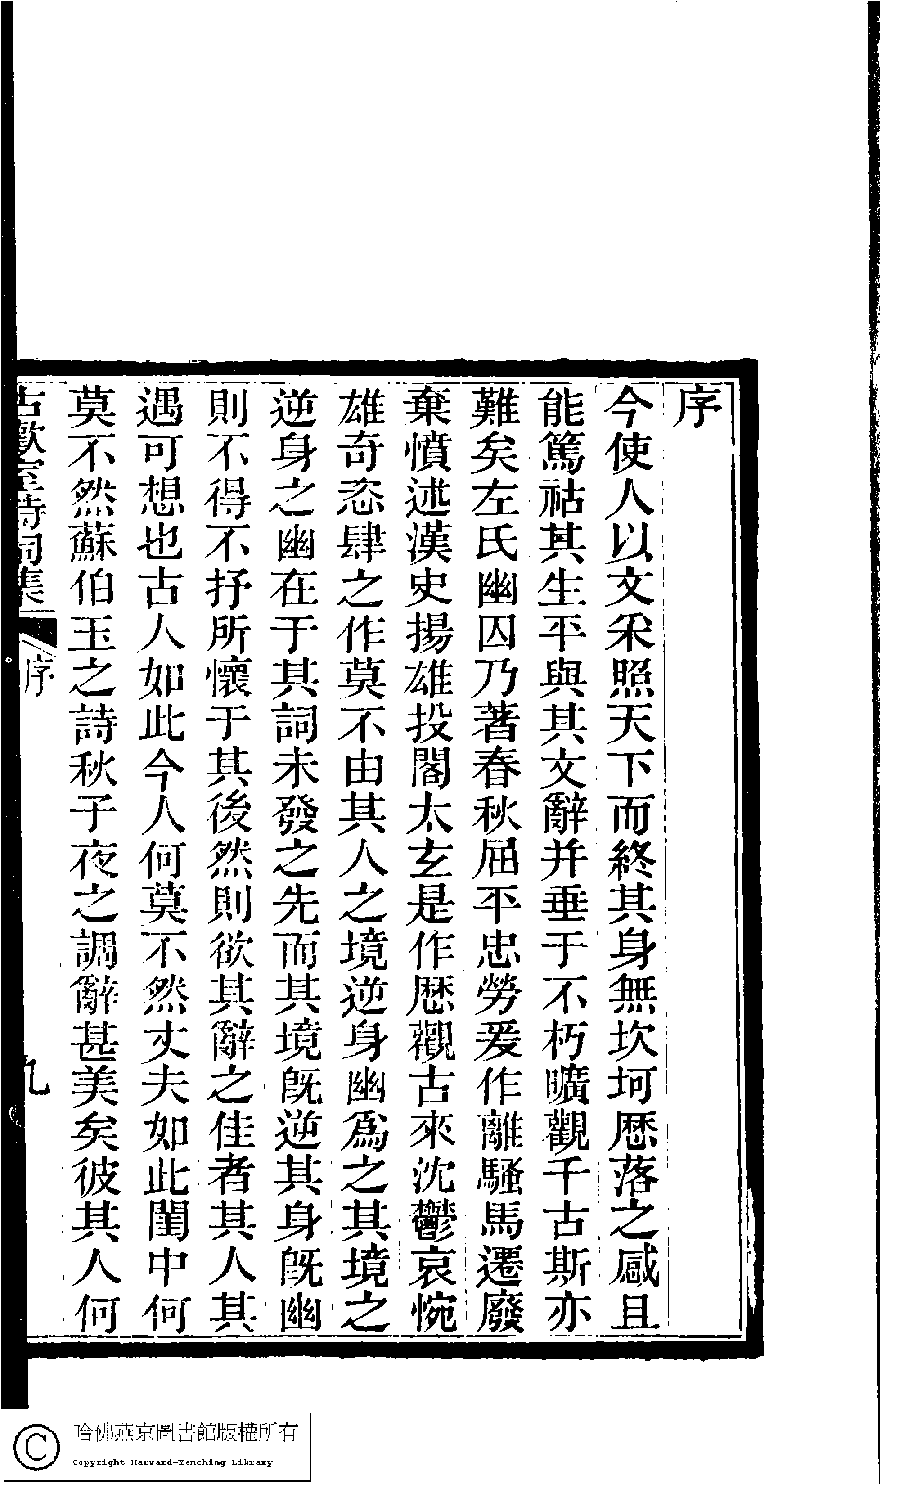 序
今使人以文采照天下而終其身無坎坷歷落之感且
能篤祜其生平與其文辭并垂于不朽曠觀千古斯亦
難矣左氏幽囚乃著春秋屈平忠勞爰作離騷馬遷廢
棄憤述漢史揚雄投閣太玄是作歷觀古來沈鬱哀惋
雄奇恣肆之作莫不由其人之境逆身幽為之其境之
逆身之幽在于其詞未發之先而其境既逆其身既幽
則不得不抒所懷于其後然則欲其辭之佳者其人其
遇可想也古人如此今人何莫不然丈夫如此閨中何
莫不然蘇伯玉之詩秋子夜之調辭甚美矣彼其人何
古歡室詩詞集
序
九
哈佛燕京圖書館版權所有
Copyright Harvard-Yenching Library